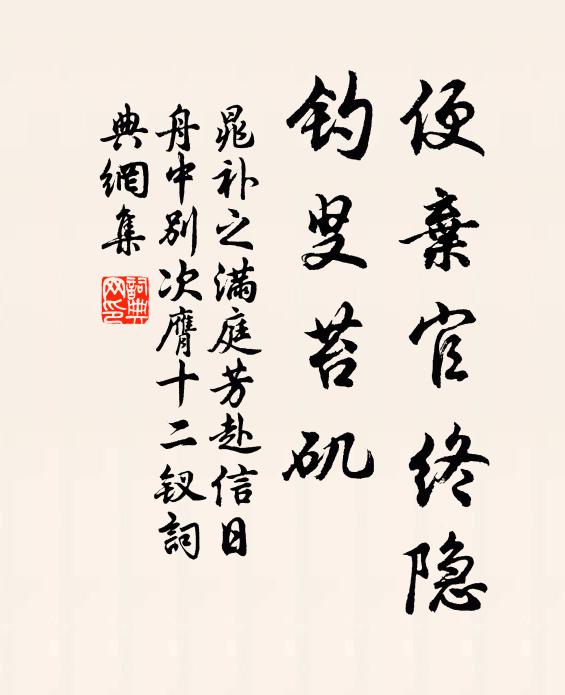 便棄官终隐
钓叟苔矶
晁补之满庭芳赴信日
舟中别次膺十二钗詞
典網集
詞典网印